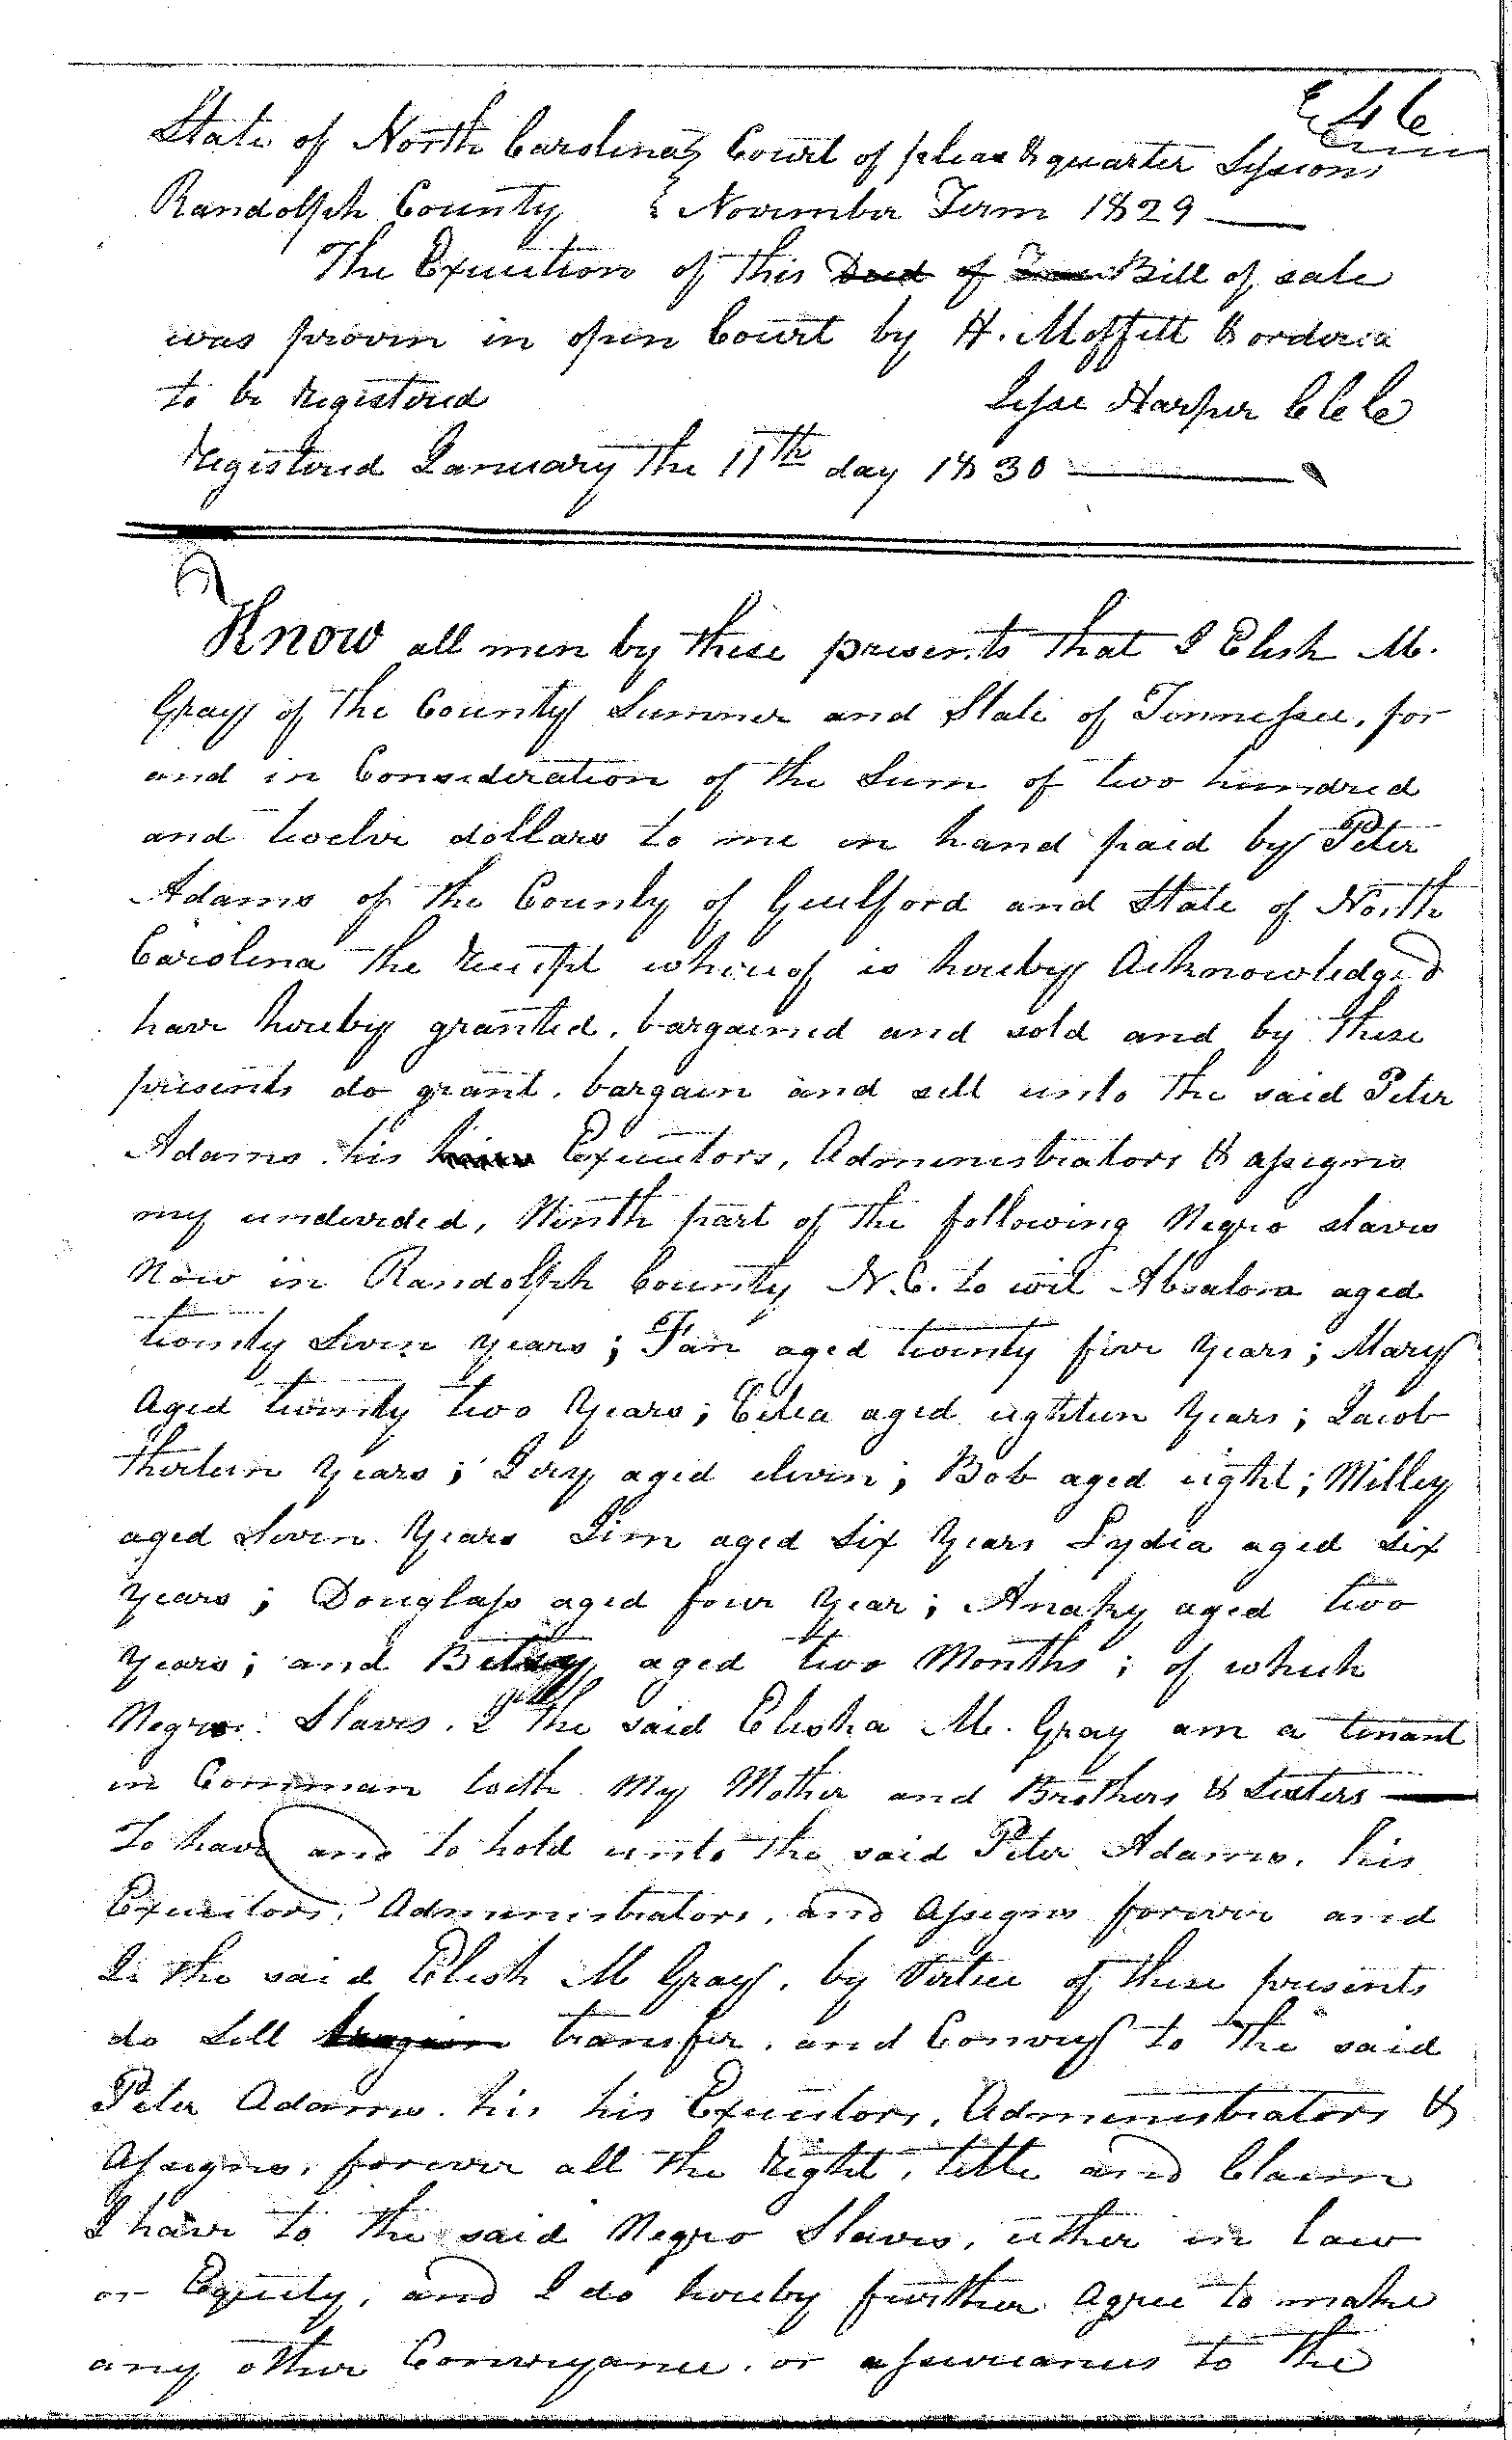 46
State of North Carolina } Court of pleas & quarter Sessions
Randolph County } November Term 1829
The Execution of this Deed of Bill of sale
was proven in open Court by A. Moffitt & orderia
to be Registered Jesse Harper C C C
Registered January the 11th day 1830
Know all men by these presents that I Elish M.
Gray of the County Sumner and State of Tennessee, for
and in Consideration of the Sum of two hundred
and twelve dollars to me in hand paid by Peter
Adams of the County of Guilford and State of North
Carolina the Receipt whereof is hereby Acknowledged
have hereby granted, bargained and sold and by these
presents do grant, bargain and sell unto the said Peter
Adams his Executors, Administrators & assigns
my undivided, Ninth part of the following Negro slaves
Now in Randolph County N.C. to wit Absalom aged
twenty Seven years; Fan aged twenty five years; Mary
Aged twenty two years; Celia aged eighteen years; Jacob
thirteen years; aged eleven; Bob aged eight; Milley
aged Seven years Jim aged Six years Lydia aged six
years; Douglass aged four year; Anaky aged two
years; and Betsey aged two Months; of which
Negro Slaves, I the said Elisha M. Gray am a tenant
in Comman with My Mother and Brothers & Sisters
To have and to hold unto the said Peter Adams, his
Executors, Administrators, and Assigns forever and
I the said Elish M Gray, by Virtue of these presents
do Sell bargain transfer, and Convey to the said
Peter Adams, his his Executors, Administrators &
Assigns, forever all the Right, title and Claim
I have to the said Negro Slaves, either in law
or Equity, and I do hereby further Agree to make
any other Conveyance, or assurances to the